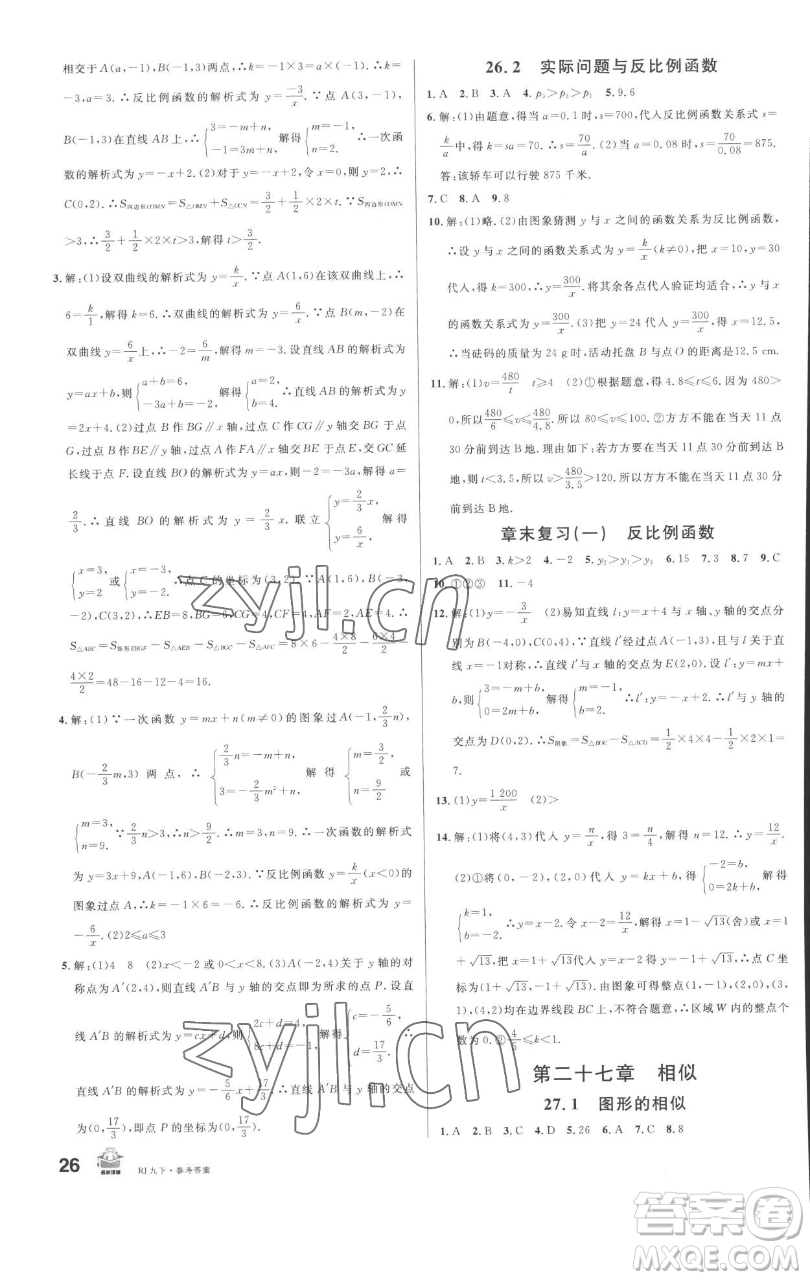 相交于A(a,-1),B(-1,3)两点,∴k=-1×3=a×(-1),∴k
=-3,a=3.∴反比例函数的解析式为y=\frac{-3}{x}.∵点A(3,-1),
B(-1,3)在直线AB上,∴{3=-m+n, -1=3m+n. 解得{m=-1, n=2. ∴一次函
数的解析式为y=-x+2.(2)对于y=-x+2,令x=0,则y=2,∴
C(0,2).∴S四边形COMN=S△OMN+S△OCN=\frac{3}{2}+\frac{1}{2}×2×t.∵S四边形COMN
>3,∴\frac{3}{2}+\frac{1}{2}×2×t>3,∴t>\frac{3}{2}.
3.解:(1)设双曲线的解析式为y=\frac{k}{x}.∵点A(1,6)在该双曲线上,∴
6=\frac{k}{1},解得k=6.∴双曲线的解析式为y=\frac{6}{x}.∵点B(m,-2)在
双曲线y=\frac{6}{x}上,∴-2=\frac{6}{m},解得m=-3.设直线AB的解析式为
y=ax+b,则{a+b=6, -3a+b=-2, 解得{a=2, b=4. ∴直线AB的解析式为y
=2x+4.(2)过点B作BG∥x轴,过点C作CG∥y轴交BG于点
G,过点B作BE∥y轴,过点A作FA∥x轴交BE于点E,交GC的
延长线于点F.设直线BO的解析式为y=ax,则-2=-3a,解得a=
\frac{2}{3}.∴直线BO的解析式为y=\frac{2}{3}x.联立{y=\frac{2}{3}x, y=\frac{6}{x}, 解得
{x=3, y=2 或{x=-3, y=-2. ∴点C的坐标为(3,2).∵A(1,6),B(-3,
-2),C(3,2),∴EB=8,BG=6,CG=4,CF=4,AF=2,AE=4.∴
S△ABC=S矩形EBGF-S△AEB-S△BGC-S△AFC=8×6-\frac{4×8}{2}-\frac{6×4}{2}-
\frac{4×2}{2}=48-16-12-4=16.
4.解:(1)∵一次函数y=mx+n(m≠0)的图象过A(-1,\frac{2}{3}n),
B(-\frac{2}{3}m,3)两点,∴{\frac{2}{3}n=-m+n, 3=-\frac{2}{3}m²+n, 解得{m=-\frac{3}{2}, n=\frac{9}{2} 或
{m=3, n=9. ∵\frac{2}{3}n>3,∴n>\frac{9}{2}.∴m=3,n=9.∴一次函数的解析式
为y=3x+9,A(-1,6),B(-2,3).∵反比例函数y=\frac{k}{x}(x<0)的
图象过点A,∴k=-1×6=-6.∴反比例函数的解析式为y=
-\frac{6}{x}.(2)2≤a≤3
5.解:(1)4 8 (2)x<-2或0<x<8.(3)A(-2,4)关于y轴的对
称点为A′(2,4),则直线A′B与y轴的交点即为所求的点P.设直
线A′B的解析式为y=cx+d,则{2c+d=4, 8c+d=-1, 解得{c=-\frac{5}{6}, d=\frac{17}{3}. ∴
直线A′B的解析式为y=-\frac{5}{6}x+\frac{17}{3}.∴直线A′B与y轴的交点
为(0,\frac{17}{3}),即点P的坐标为(0,\frac{17}{3}).
26 名校课堂 RJ九下·参考答案
26.2 实际问题与反比例函数
1.A 2.B 3.A 4.p₃>p₂>p₁ 5.9.6
6.解:(1)由题意,得当a=0.1时,s=700,代入反比例函数关系式s=
\frac{k}{a}中,得k=sa=70.∴s=\frac{70}{a}.(2)当a=0.08时,s=\frac{70}{0.08}=875.
答:该轿车可以行驶875千米.
7.C 8.A 9.8
10.解:(1)略.(2)由图象猜测y与x之间的函数关系为反比例函数,
∴设y与x之间的函数解析式为y=\frac{k}{x}(k≠0),把x=10,y=30
代入,得k=300.∴y=\frac{300}{x}.将其余各点代入验证均适合,∴y与x
的函数关系式为y=\frac{300}{x}.(3)把y=24代入y=\frac{300}{x},得x=12.5,
∴当砝码的质量为24 g时,活动托盘B与点O的距离是12.5 cm.
11.解:(1)v=\frac{480}{t} t≥4 (2)①根据题意,得4.8≤t≤6.因为480>
0,所以\frac{480}{6}≤v≤\frac{480}{4.8}.所以80≤v≤100.②方方不能在当天11点
30分前到达B地.理由如下:若方方要在当天11点30分前到达B
地,则t<3.5,所以v>\frac{480}{3.5}>120,所以方方不能在当天11点30分
前到达B地.
章末复习(一) 反比例函数
1.A 2.B 3.k>2 4.-2 5.y₂>y₁>y₃ 6.15 7.3 8.7 9.C
10.①②③ 11.-4
12.解:(1)y=-\frac{3}{x} (2)易知直线l:y=-x+4与x,y轴的交点分
别为B(4,0),C(0,4),∵直线l′经过点A(-1,3),且与l关于直
线x=-1对称,∴直线l′与x轴的交点为E(2,0).设l′:y=mx+
b,则{3=-m+b, 0=2m+b, 解得{m=-1, b=2. ∴l′:y=-x+2.∴l′与y轴的
交点为D(0,2).∴S阴影=S△BOC-S△ACD=\frac{1}{2}×4×4-\frac{1}{2}×2×1=
7.
13.(1)y=\frac{1 200}{x} (2)>
14.解:(1)将(4,3)代入y=\frac{n}{x},得3=\frac{n}{4},解得n=12.∴y=\frac{12}{x}.
(2)①将(0,-2),(2,0)代入y=kx+b,得{-2=b, 0=2k+b, 解得
{k=1, b=-2. ∴y=x-2.∵x-2=\frac{12}{x},解得x=1-√13(舍)或x=1
+√13,把x=1+√13代入y=x-2得y=-1+√13.∴点C坐标
为(1+√13,-1+√13).由图象可得整点(3,1),(2,0),(2,3),
(3,4),(4,2)在边界线段BC上,不符合题意,∴区域W内的整点个
数为0.②\frac{4}{5}≤k<1.
第二十七章 相似
27.1 图形的相似
1.A 2.B 3.C 4.D 5.26 6.B 7.C 8.8
zyjl.cn
zyjl.cn
答案圈
MXQE.COM